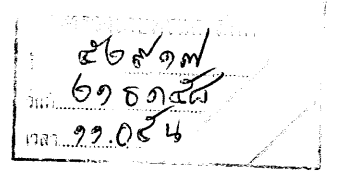 ๕๒๙๑๗
วันที่ ๒๑ ธค ๕๘
เวลา ๑๑.๐๕ น